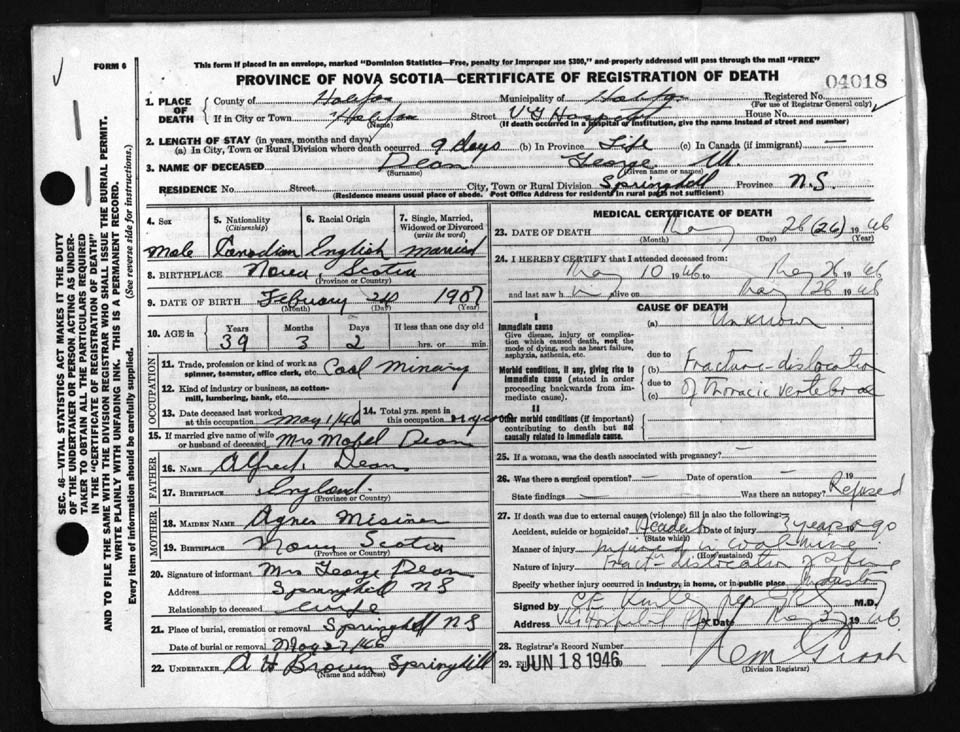 FORM 6
This form if placed in an envelope, marked "Dominion Statistics—Free, penalty for improper use $300," and properly addressed will pass through the mail "FREE"
PROVINCE OF NOVA SCOTIA—CERTIFICATE OF REGISTRATION OF DEATH
04018
1. PLACE OF DEATH
County of Halifax Municipality of Registered No.
(For use of Registrar General only)
If in City or Town Halifax Street V G Hospital House No.
(Name) (If death occurred in a hospital or institution, give the name instead of street and number)
2. LENGTH OF STAY (in years, months and days)
(a) In City, Town or Rural Division where death occurred 9 days (b) In Province Life (c) In Canada (if immigrant) —
3. NAME OF DECEASED Dean George W.
(Surname) (Given name or names)
RESIDENCE No. Street City, Town or Rural Division Springhill Province N.S.
(Residence means usual place of abode. Post Office Address for residents in rural parts not sufficient)
4. Sex
Male
5. Nationality (Citizenship)
Canadian
6. Racial Origin
English
7. Single, Married, Widowed or Divorced (write the word)
Married
8. BIRTHPLACE Nova Scotia
(Province or Country)
9. DATE OF BIRTH February 24 1907
(Month) (Day) (Year)
10. AGE in Years Months Days If less than one day old
39 3 2 hrs. or min.
OCCUPATION
11. Trade, profession or kind of work as spinner, teamster, office clerk, etc. Coal Mining
12. Kind of industry or business, as cotton-mill, lumbering, bank, etc.
13. Date deceased last worked at this occupation May 1/46
14. Total yrs. spent in this occupation
15. If married give name of wife or husband of deceased Mrs Mabel Dean
FATHER
16. NAME Alfred Dean
17. BIRTHPLACE England
(Province or Country)
MOTHER
18. MAIDEN NAME Agnes
19. BIRTHPLACE Nova Scotia
(Province or Country)
20. Signature of informant Mrs George Dean
Address Springhill NS
Relationship to deceased wife
21. Place of burial, cremation or removal Springhill NS
Date of burial or removal May 27/46
22. UNDERTAKER A H Brown Springhill
(Name and address)
MEDICAL CERTIFICATE OF DEATH
23. DATE OF DEATH May 26 (26) 1946
(Month) (Day) (Year)
24. I HEREBY CERTIFY that I attended deceased from:
May 10 1946 to May 26 1946
and last saw h im alive on May 26 1946
CAUSE OF DEATH
I
Immediate cause
Give disease, injury or complication which caused death, not the mode of dying, such as heart failure, asphyxia, asthenia, etc.
(a) Unknown
due to
Morbid conditions, if any, giving rise to immediate cause (stated in order proceeding backwards from immediate cause).
(b) Fracture-dislocation
due to
(c) of thoracic vertebrae
II
Other morbid conditions (if important) contributing to death but not causally related to immediate cause.
25. If a woman, was the death associated with pregnancy? —
26. Was there a surgical operation? — Date of operation — 19
State findings — Was there an autopsy? Refused
27. If death was due to external causes (violence) fill in also the following:
Accident, suicide or homicide? Accident Date of injury 3 years ago
(State which)
Manner of injury injured in coal mine
(How sustained)
Nature of injury Fract-dislocation of spine
Specify whether injury occurred in industry, in home, or in public place Industry
Signed by M.D.
Address V G Hospital Date May 1946
28. Registrar's Record Number
29. JUN 18 1946
(Division Registrar)
SEC. 46—VITAL STATISTICS ACT MAKES IT THE DUTY OF THE UNDERTAKER OR PERSON ACTING AS UNDERTAKER TO OBTAIN ALL THE PARTICULARS REQUIRED IN THE "CERTIFICATE OF REGISTRATION OF DEATH" AND TO FILE THE SAME WITH THE DIVISION REGISTRAR WHO SHALL ISSUE THE BURIAL PERMIT.
WRITE PLAINLY WITH UNFADING INK. THIS IS A PERMANENT RECORD.
Every item of information should be carefully supplied. (See reverse side for instructions.)